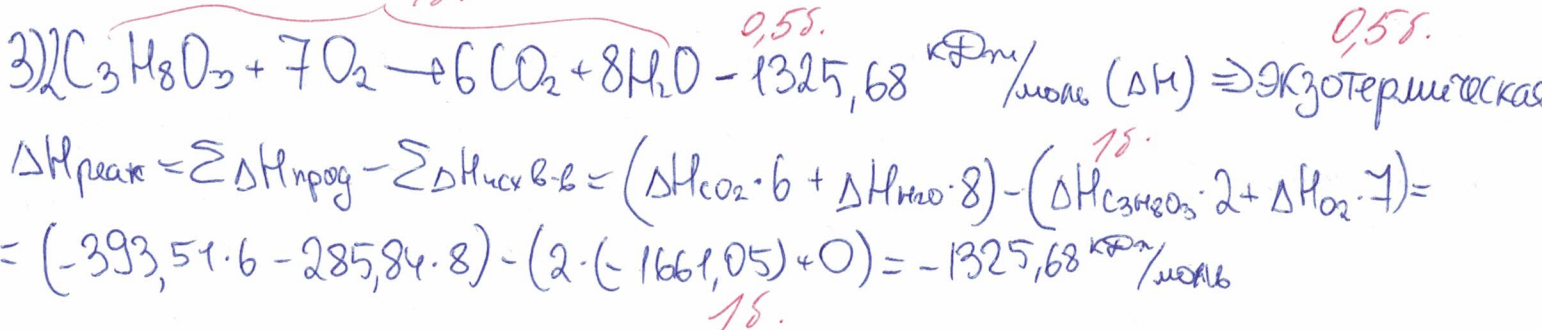 0,5б. 0,5б.
3) 2C₃H₈O₃ + 7O₂ → 6CO₂ + 8H₂O - 1325,68 кДж/моль (ΔH) ⇒ Экзотермическая
1б.
ΔHреак = ΣΔHпрод - ΣΔHисх в-в = (ΔHCO₂·6 + ΔHH₂O·8) - (ΔHC₃H₈O₃·2 + ΔHO₂·7) =
= (-393,51·6 - 285,84·8) - (2·(-1661,05) + 0) = -1325,68 кДж/моль
1б.